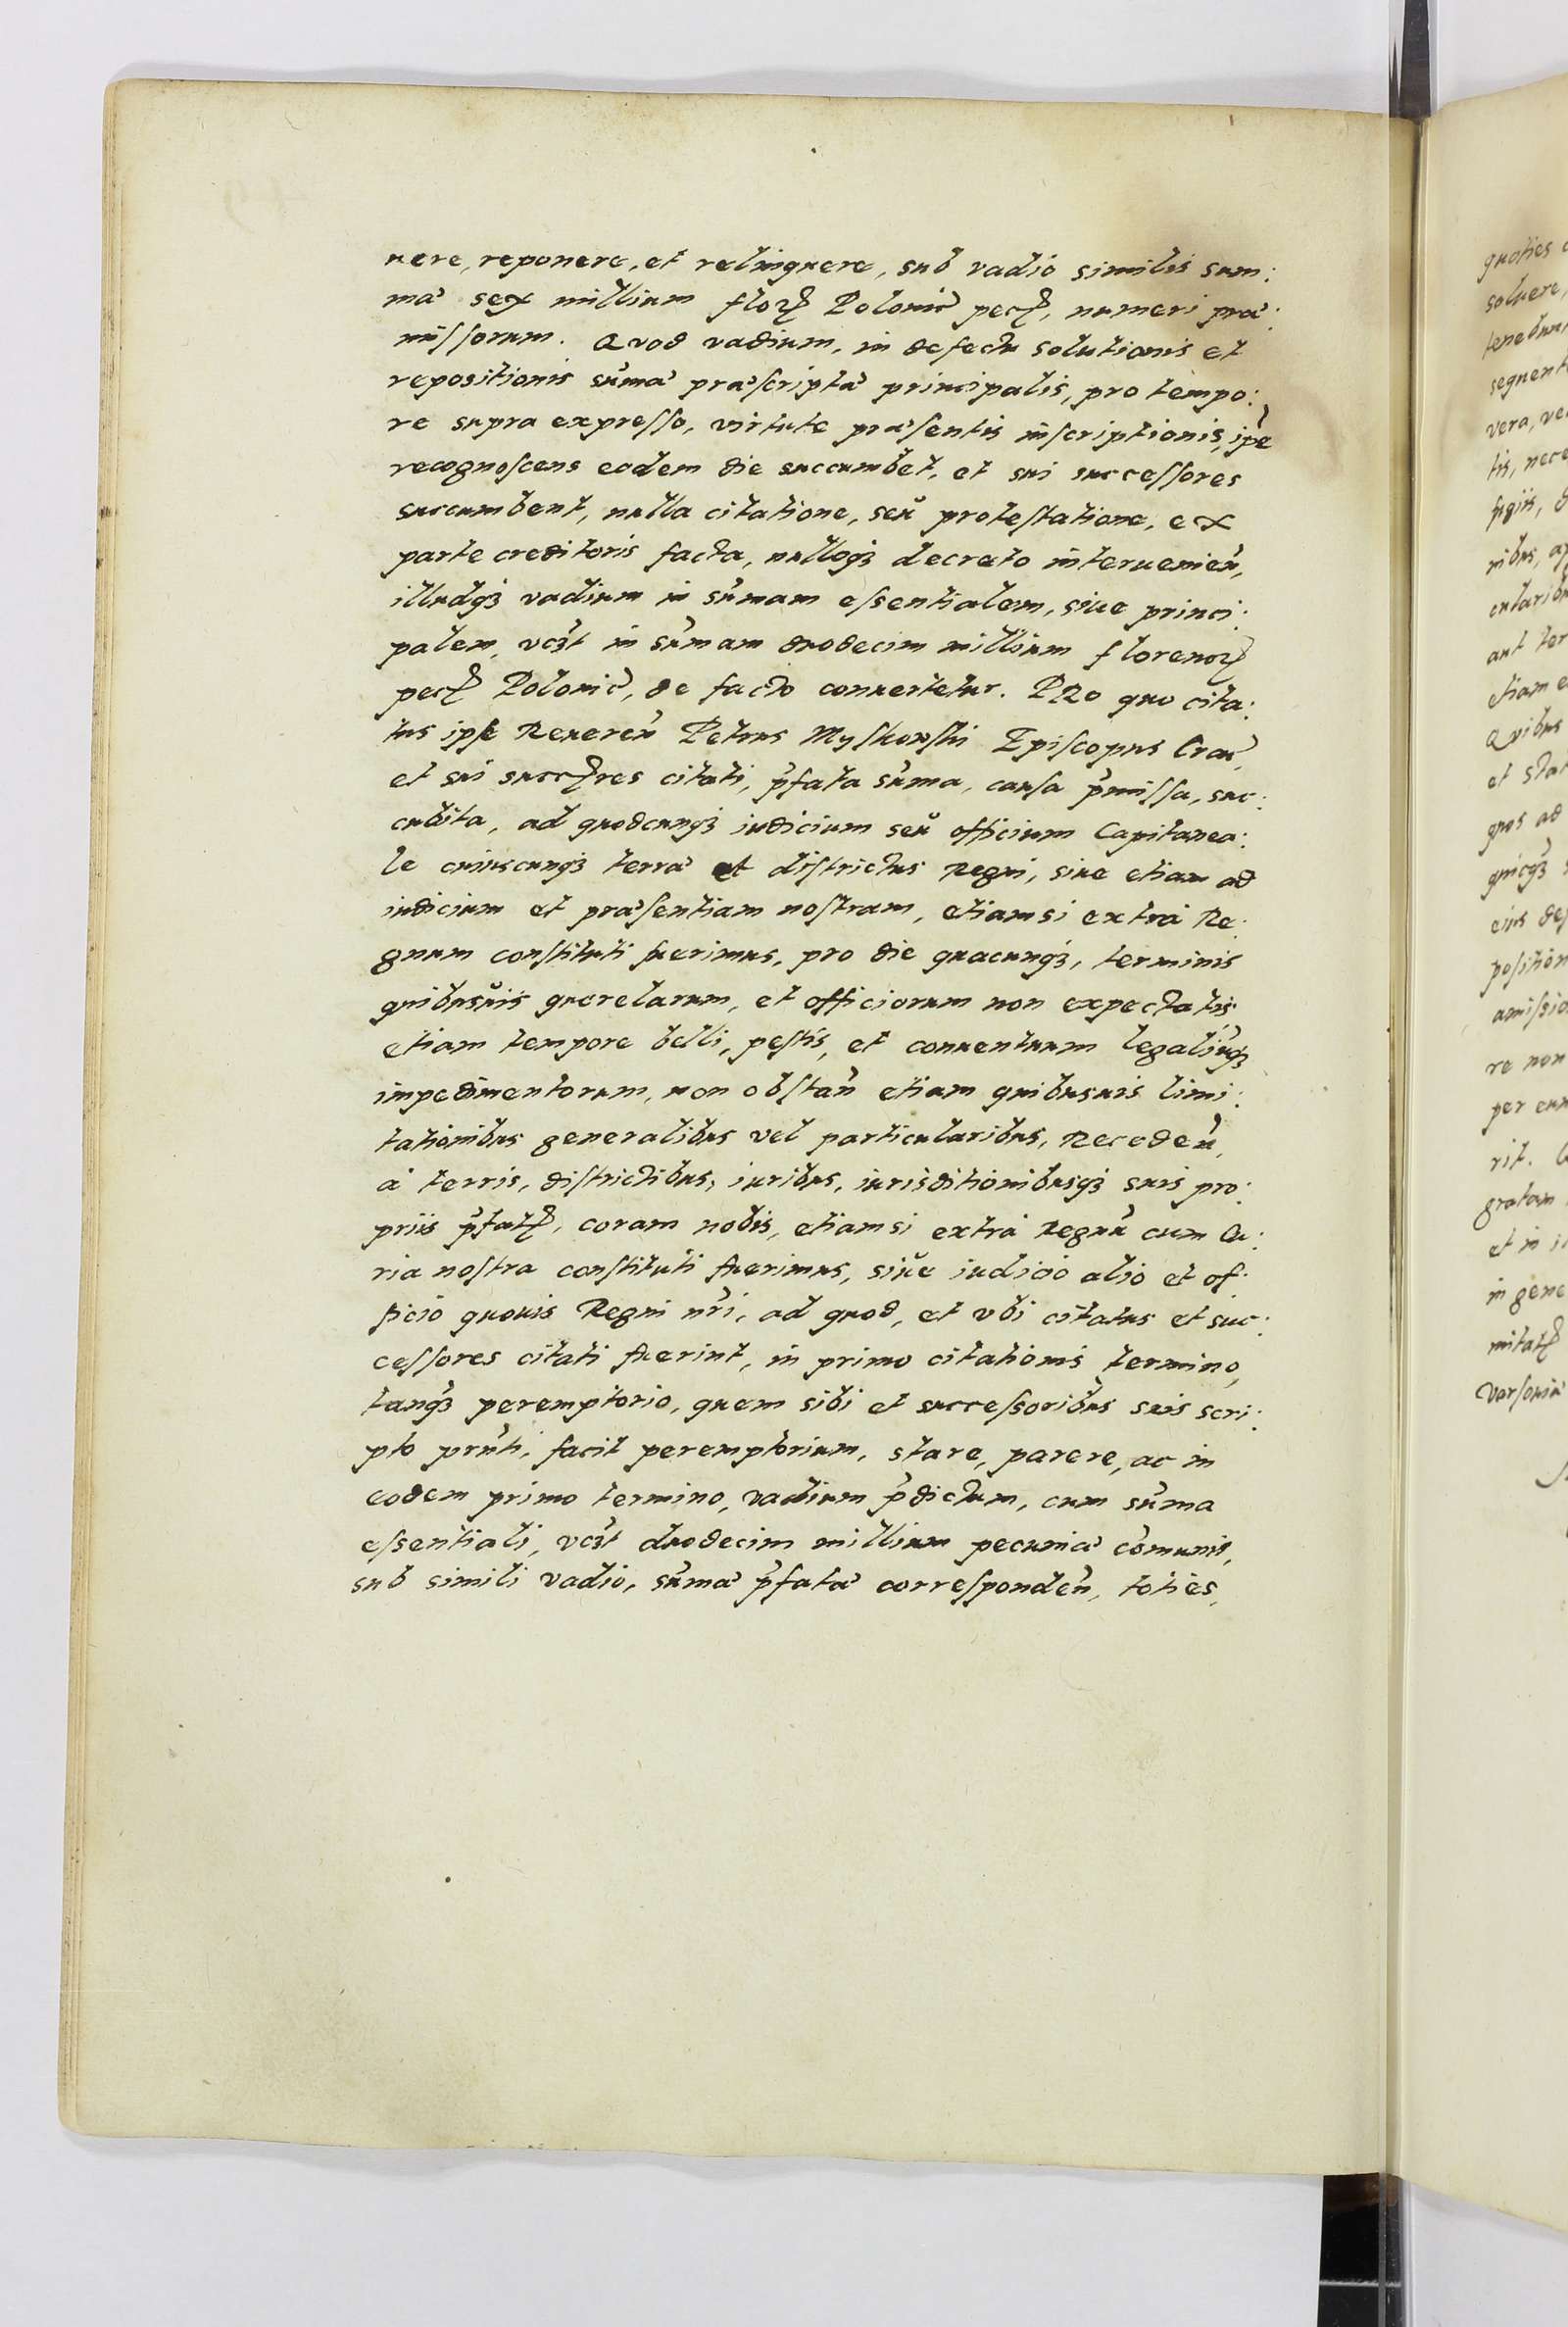 nere, reponere, et relinquere, sub vadio similis sum:
mæ sex millium floꝝ Polonic̃ pecꝭ, numeri præ:
missorum. Quod vadium, in defectu solutionis et
repositionis sum̃æ præscriptæ principalis, pro tempo:
re supra expresso, virtute præsentis inscriptionis, ip̃e
recognoscens eodem die succumbet, et sui successores
succumbent, nulla citatione, seu protestatione, ex
parte creditoris facta, nulloqꝫ decreto interuenien̄,
illudqꝫ vadium in sum̃am essentialem, siue princi:
palem, vcꝫt in sum̃am duodecim millium florenoꝝ
pecꝭ Polonic̃, de facto conuertetur. PRo quo cita:
tus ipse Reueren̄ Petrus Myskowski Episcopus Crac̃,
et sui succꝭres citati, p̃fata sum̃a, causa p̃missa, suc:
cubita, ad quodcunqꝫ iudicium seu officium Capitanea:
le cuiuscunqꝫ terræ et districtus Regni, siue etiam ad
iudicium et præsentiam nostram, etiamsi extra Re:
gnum constituti fuerimus, pro die quacunqꝫ, terminis
quibusuis querelarum, et officiorum non expectatis
etiam tempore belli, pestis, et conuentuum legaliũqꝫ
impedimentorum, non obstan̄ etiam quibusuis limi:
tationibus generalibus vel particularibus, Receden̄,
à terris, districtibus, iuribus, iurisditionibusqꝫ suis pro:
priis p̃fatꝭ, coram nobis, etiamsi extra Regnũ cum Cu:
ria nostra constituti fuerimus, siue iudicio alio et of:
ficio quouis Regni nr̃i, ad quod, et vbi citatus et suc:
cessores citati fuerint, in primo citationis termino,
tanqꝫ peremptorio, quem sibi et successoribus suis scri:
pto prñti, facit peremptorium, stare, parere, ac in
eodem primo termino, vadium p̃dictum, cum sum̃a
essentiali, vcꝫt duodecim millium pecuniæ com̃unis,
sub simili vadio, sum̃æ p̃fatæ corresponden̄, toties,
quoties
soluere,
vera,
et
ad
re non
per
rit.
gratam
et in
in gene